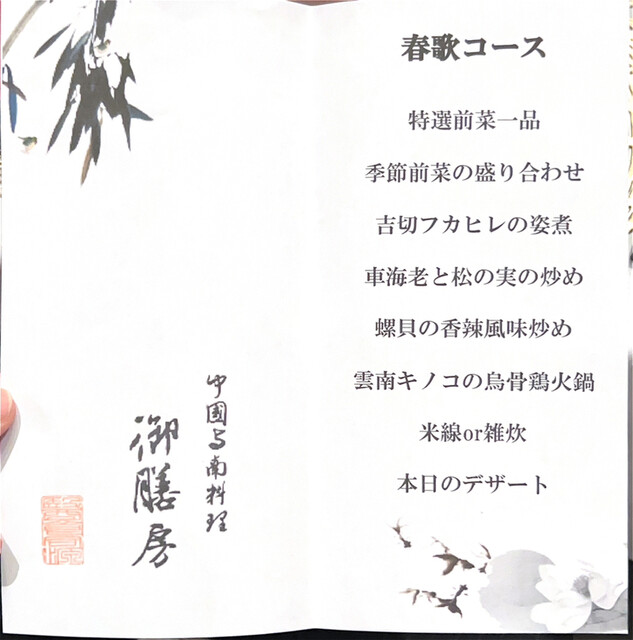 春歌コース
特選前菜一品
季節前菜の盛り合わせ
吉切フカヒレの姿煮
車海老と松の実の炒め
螺貝の香辣風味炒め
雲南キノコの烏骨鶏火鍋
米線or雑炊
本日のデザート
中國雲南料理
御膳房